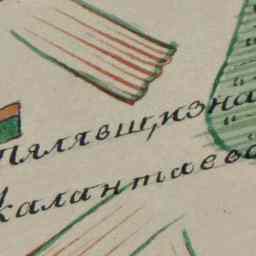 Пялявщизна
Калантаево